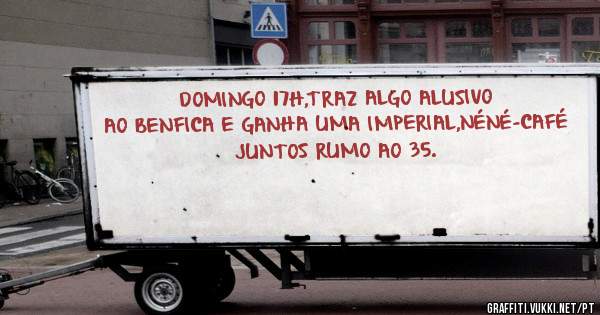 DOMINGO 17H,TRAZ ALGO ALUSIVO
AO BENFICA E GANHA UMA IMPERIAL,NÉNÉ-CAFÉ
JUNTOS RUMO AO 35.
GRAFFITI.VUKKI.NET/PT